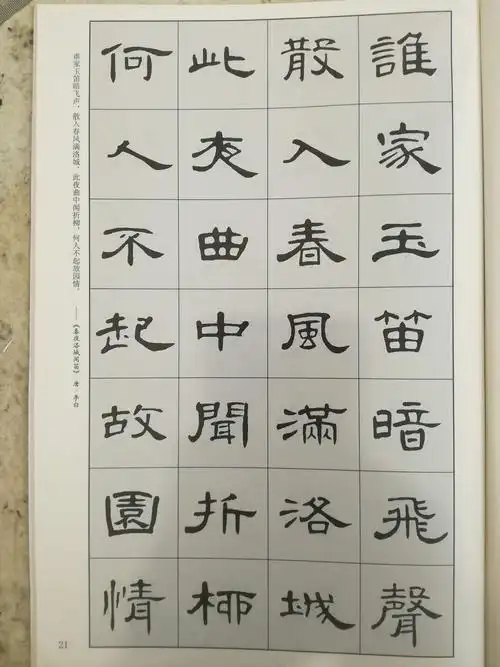 誰家玉笛暗飛聲
散入春風滿洛城
此夜曲中聞折柳
何人不起故園情
谁家玉笛暗飞声，散入春风满洛城。此夜曲中闻折柳，何人不起故园情。
——《春夜洛城闻笛》唐·李白
21